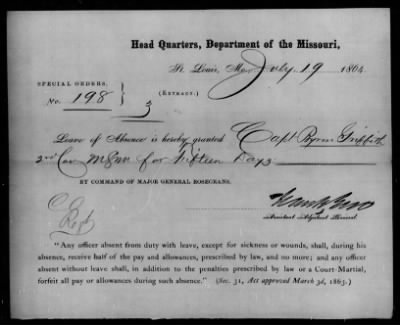 Head Quarters, Department of the Missouri,
St. Louis, Mo., July 19 1864
SPECIAL ORDERS, }
No. 198 }
(EXTRACT.)
3
Leave of Absence is hereby granted Capt Griffith
2nd Cav MSM for Fifteen Days
BY COMMAND OF MAJOR GENERAL ROSECRANS.
Assistant Adjutant General.
"Any officer absent from duty with leave, except for sickness or wounds, shall, during his
absence, receive half of the pay and allowances, prescribed by law, and no more; and any officer
absent without leave shall, in addition to the penalties prescribed by law or a Court-Martial,
forfeit all pay or allowances during such absence." (Sec. 31, Act approved March 3d, 1863.)